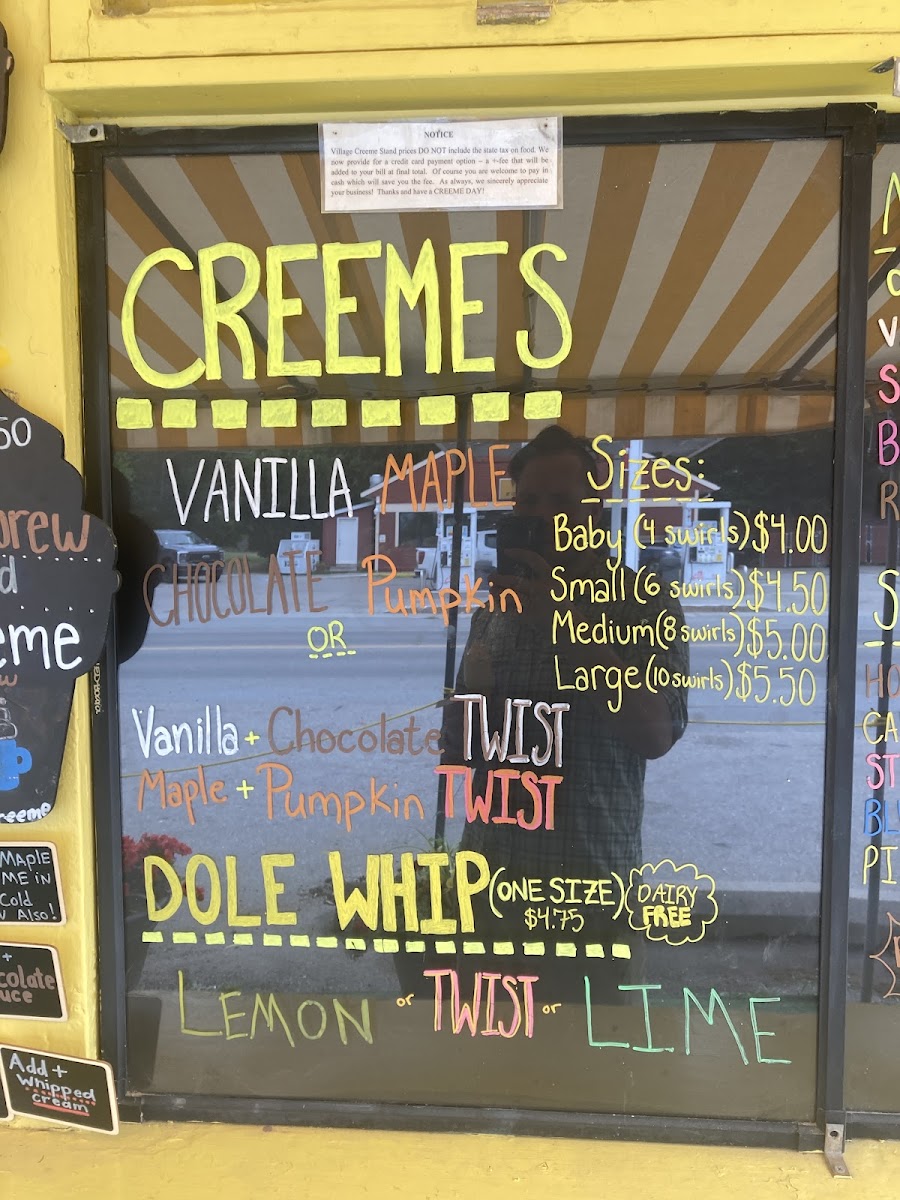 NOTICE
Village Creeme Stand prices DO NOT include the state tax on food. We
now provide for a credit card payment option – a +-fee that will be
added to your bill at final total. Of course you are welcome to pay in
cash which will save you the fee. As always, we sincerely appreciate
your business! Thanks and have a CREEME DAY!
CREEMES
VANILLA MAPLE
CHOCOLATE Pumpkin
OR
Vanilla + Chocolate TWIST
Maple + Pumpkin TWIST
Sizes:
Baby (4 swirls) $4.00
Small (6 swirls) $4.50
Medium (8 swirls) $5.00
Large (10 swirls) $5.50
DOLE WHIP (ONE SIZE) $4.75
DAIRY
FREE
LEMON or TWIST or LIME
50
MAPLE
ME IN
Cold
Also!
+
Add +
Whipped
Cream